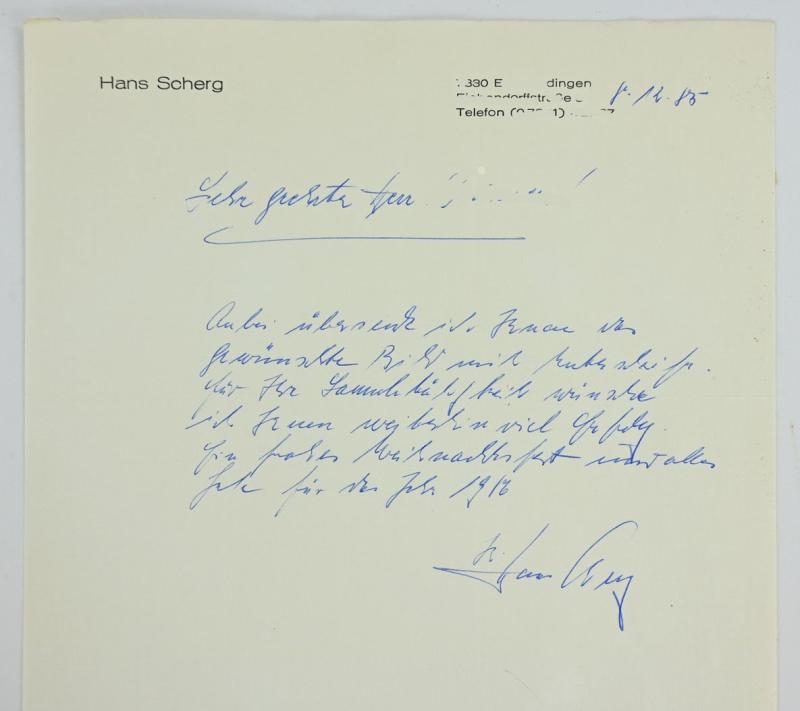 Hans Scherg
330 E dingen
Telefon
8.12.85
Sehr geehrter Herr
Anbei übersende ich Ihnen das
gewünschte Bild mit Unterschrift.
Für Ihre Sammlertätigkeit wünsche
ich Ihnen weiterhin viel Erfolg.
Ein frohes Weihnachtsfest und alles
Gute für das Jahr 1986
Hans Scherg